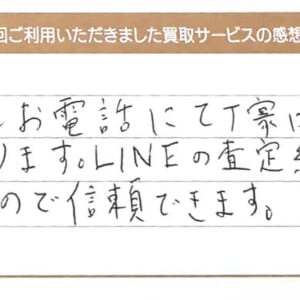 回ご利用いただきました買取サービスの感想
お電話にて丁寧に
ります。LINEの査定
ので信頼できます。